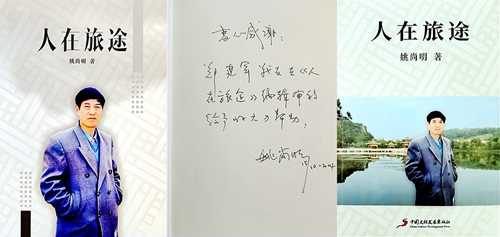 人在旅途
姚尚明 著
衷心感谢:
在《人
在旅途》编辑审稿
给予的大力帮助!
姚尚明
人在旅途
姚尚明 著
中国文化发展出版社
China Culture Development Press